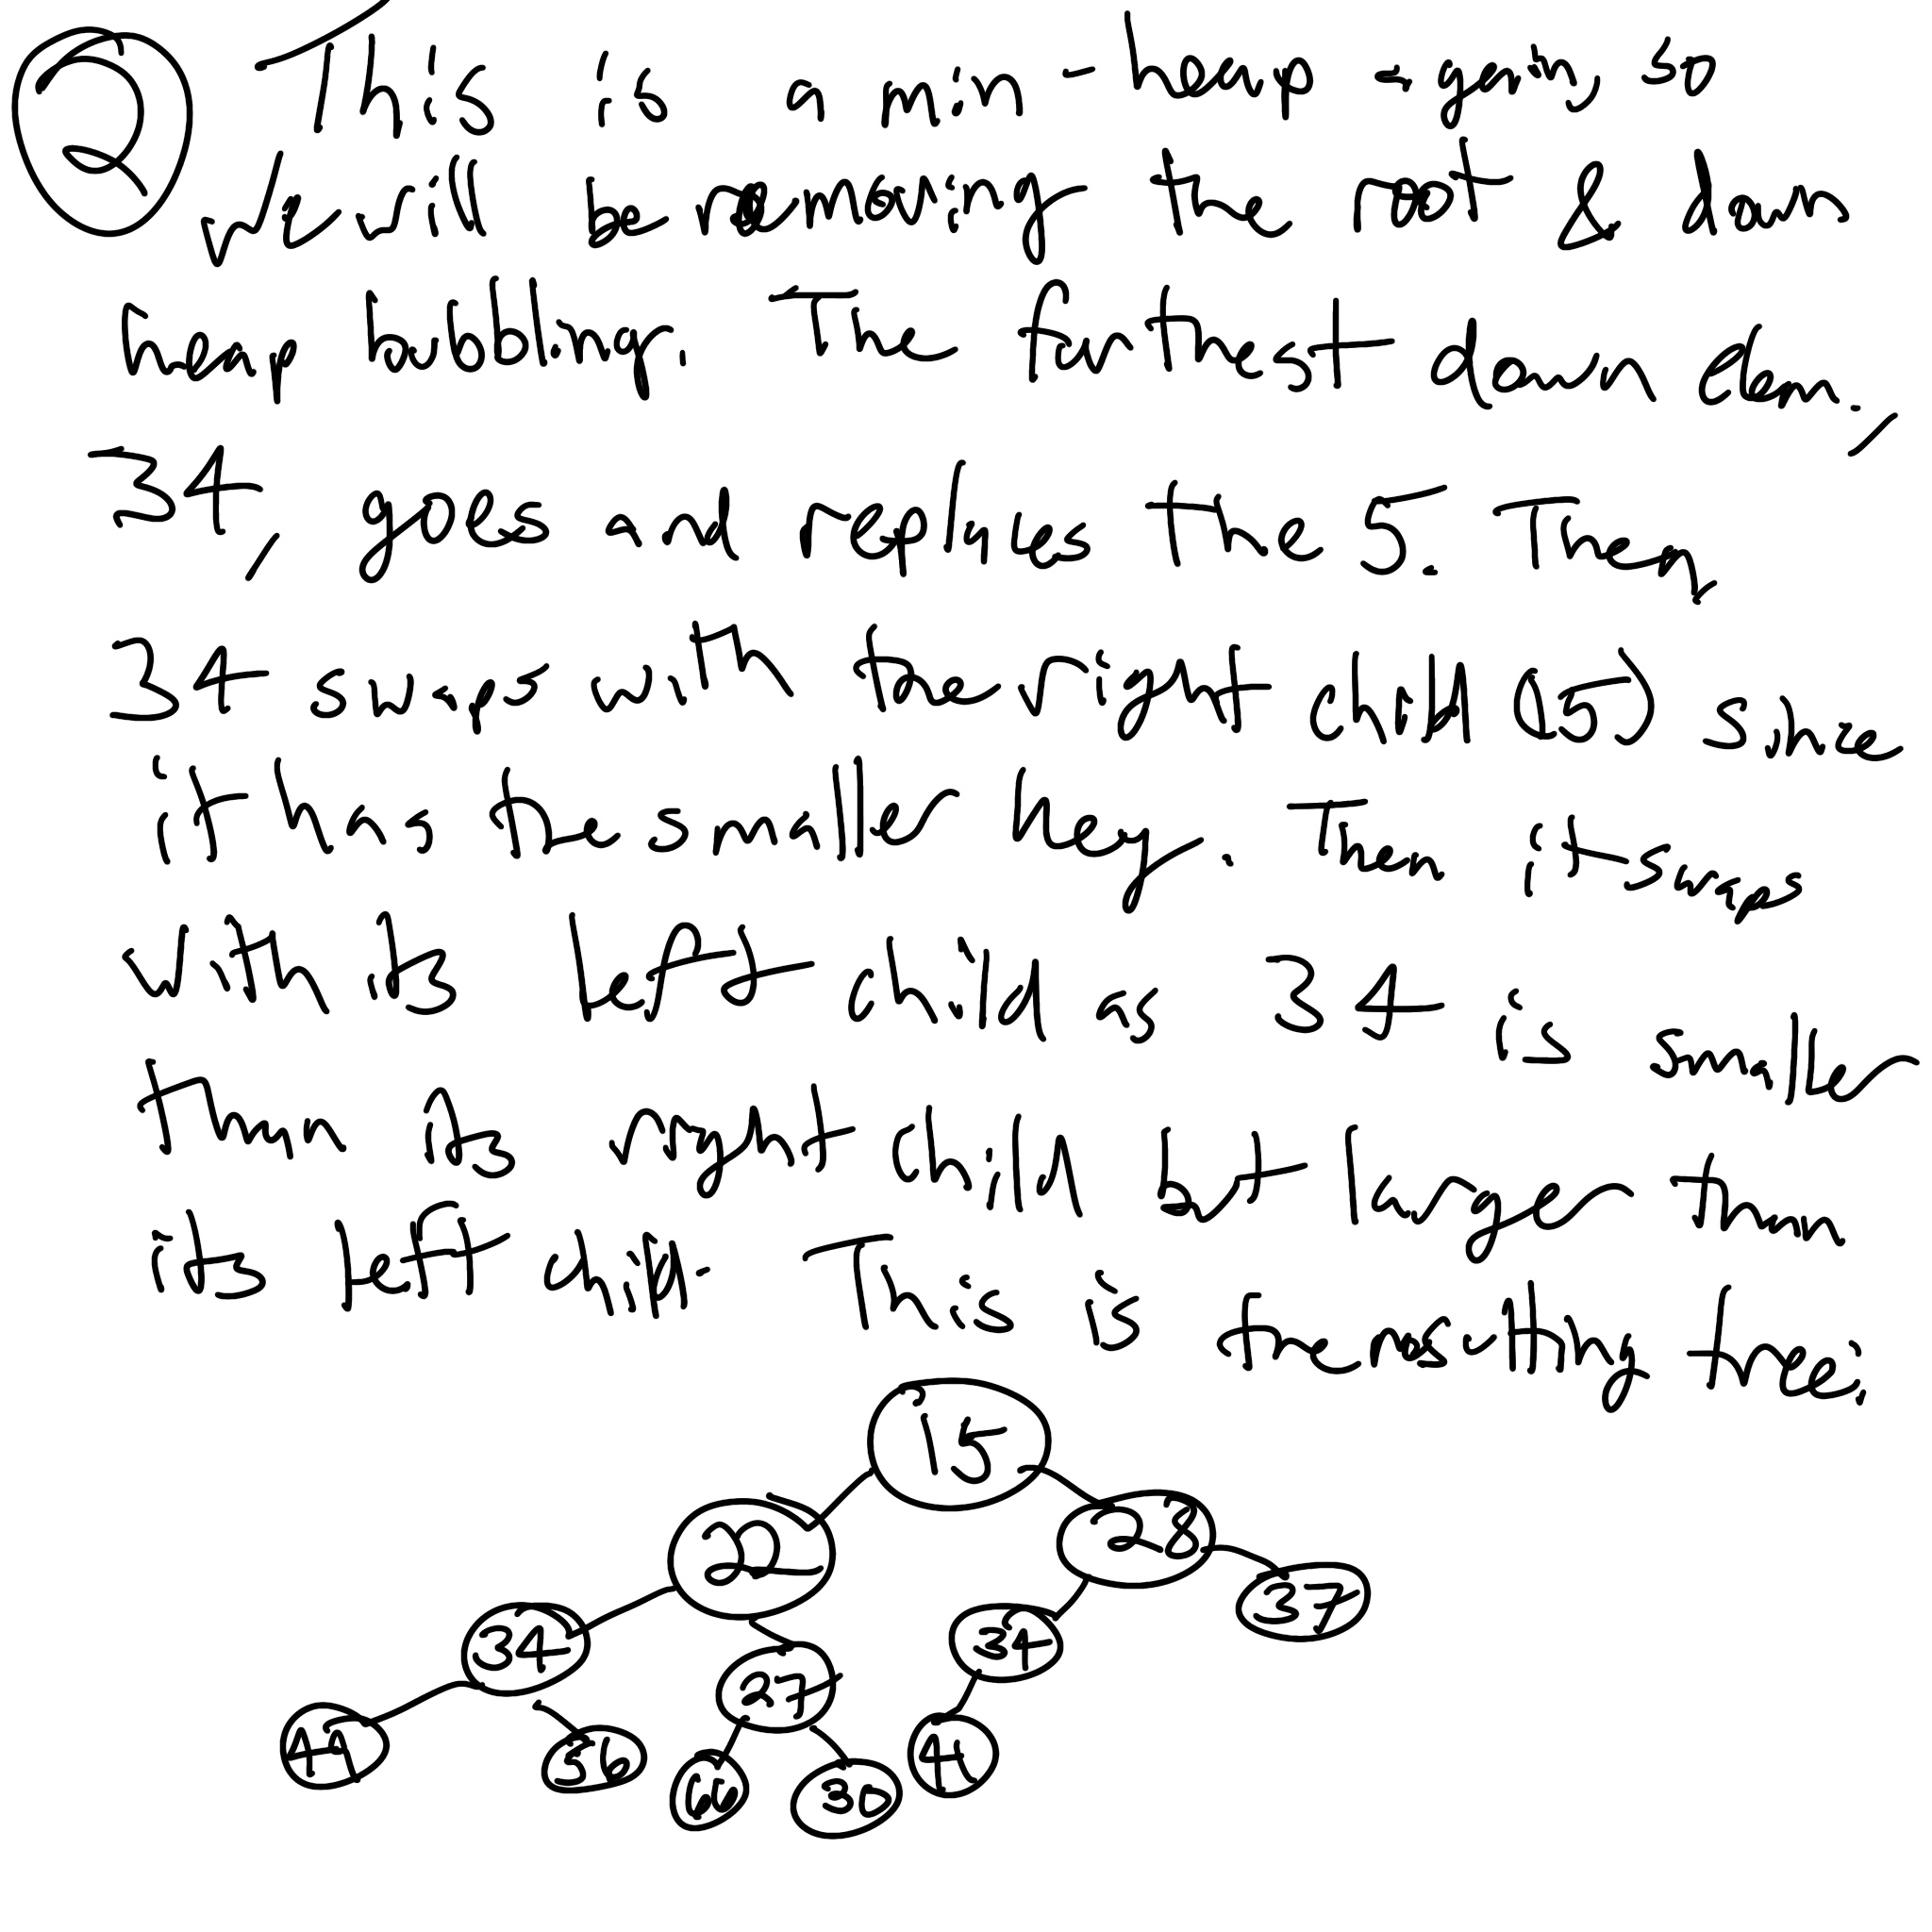 Q This is a min-heap again so
I will be removing the root & down
heap bubbling. The furthest down elem.,
34, goes and replaces the 5. Then,
34 swaps with the right child (15) since
it has the smaller key. Then it swaps
with its left child as 34 is smaller
than its right child but larger than
its left child. This is the resulting tree:
15
22 23
34 27 34 37
44 56 30